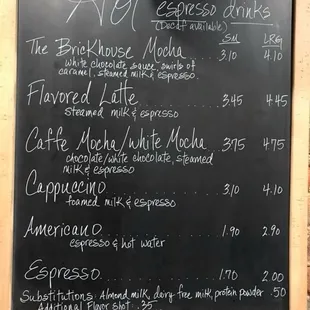 Hot espresso drinks
(Decaf available) SM LRG
The BrickHouse Mocha 3.10 4.10
white chocolate sauce, swirls of
caramel, steamed milk & espresso.
Flavored Latte 3.45 4.45
steamed milk & espresso
Caffe Mocha/white Mocha 3.75 4.75
chocolate/white chocolate, steamed
milk & espresso
Cappuccino 3.10 4.10
foamed milk & espresso
Americano 1.90 2.90
espresso & hot water
Espresso 1.70 2.00
Substitutions: Almond milk, dairy-free milk, protein powder .50
Additional Flavor shot .35